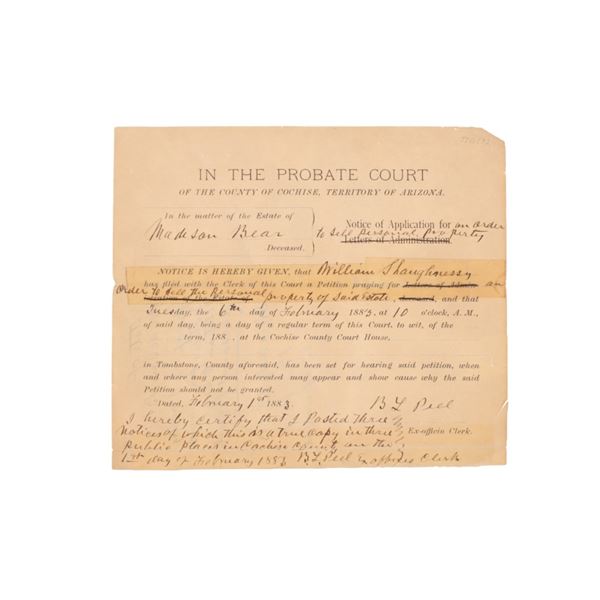 IN THE PROBATE COURT
OF THE COUNTY OF COCHISE, TERRITORY OF ARIZONA.
In the matter of the Estate of
Madison Bear
Deceased.
Notice of Application for an order
to sell personal property
Letters of Administration
NOTICE IS HEREBY GIVEN, that William Shaughnessy
has filed with the Clerk of this Court a Petition praying for Letters of Admin- an
order to sell the Personal property of Said Estate, deceased, and that
Tuesday, the 6th day of February 1883, at 10 o'clock, A. M.,
of said day, being a day of a regular term of this Court, to wit, of the
term, 188 , at the Cochise County Court House,
in Tombstone, County aforesaid, has been set for hearing said petition, when
and where any person interested may appear and show cause why the said
Petition should not be granted.
Dated, February 1st 1883
B L Peel
Ex-officio Clerk.
I hereby certify that I Posted three
notices of which this is a true copy in three
public places in Cochise County on the
1st day of February 1883 B L Peel Ex officio Clerk